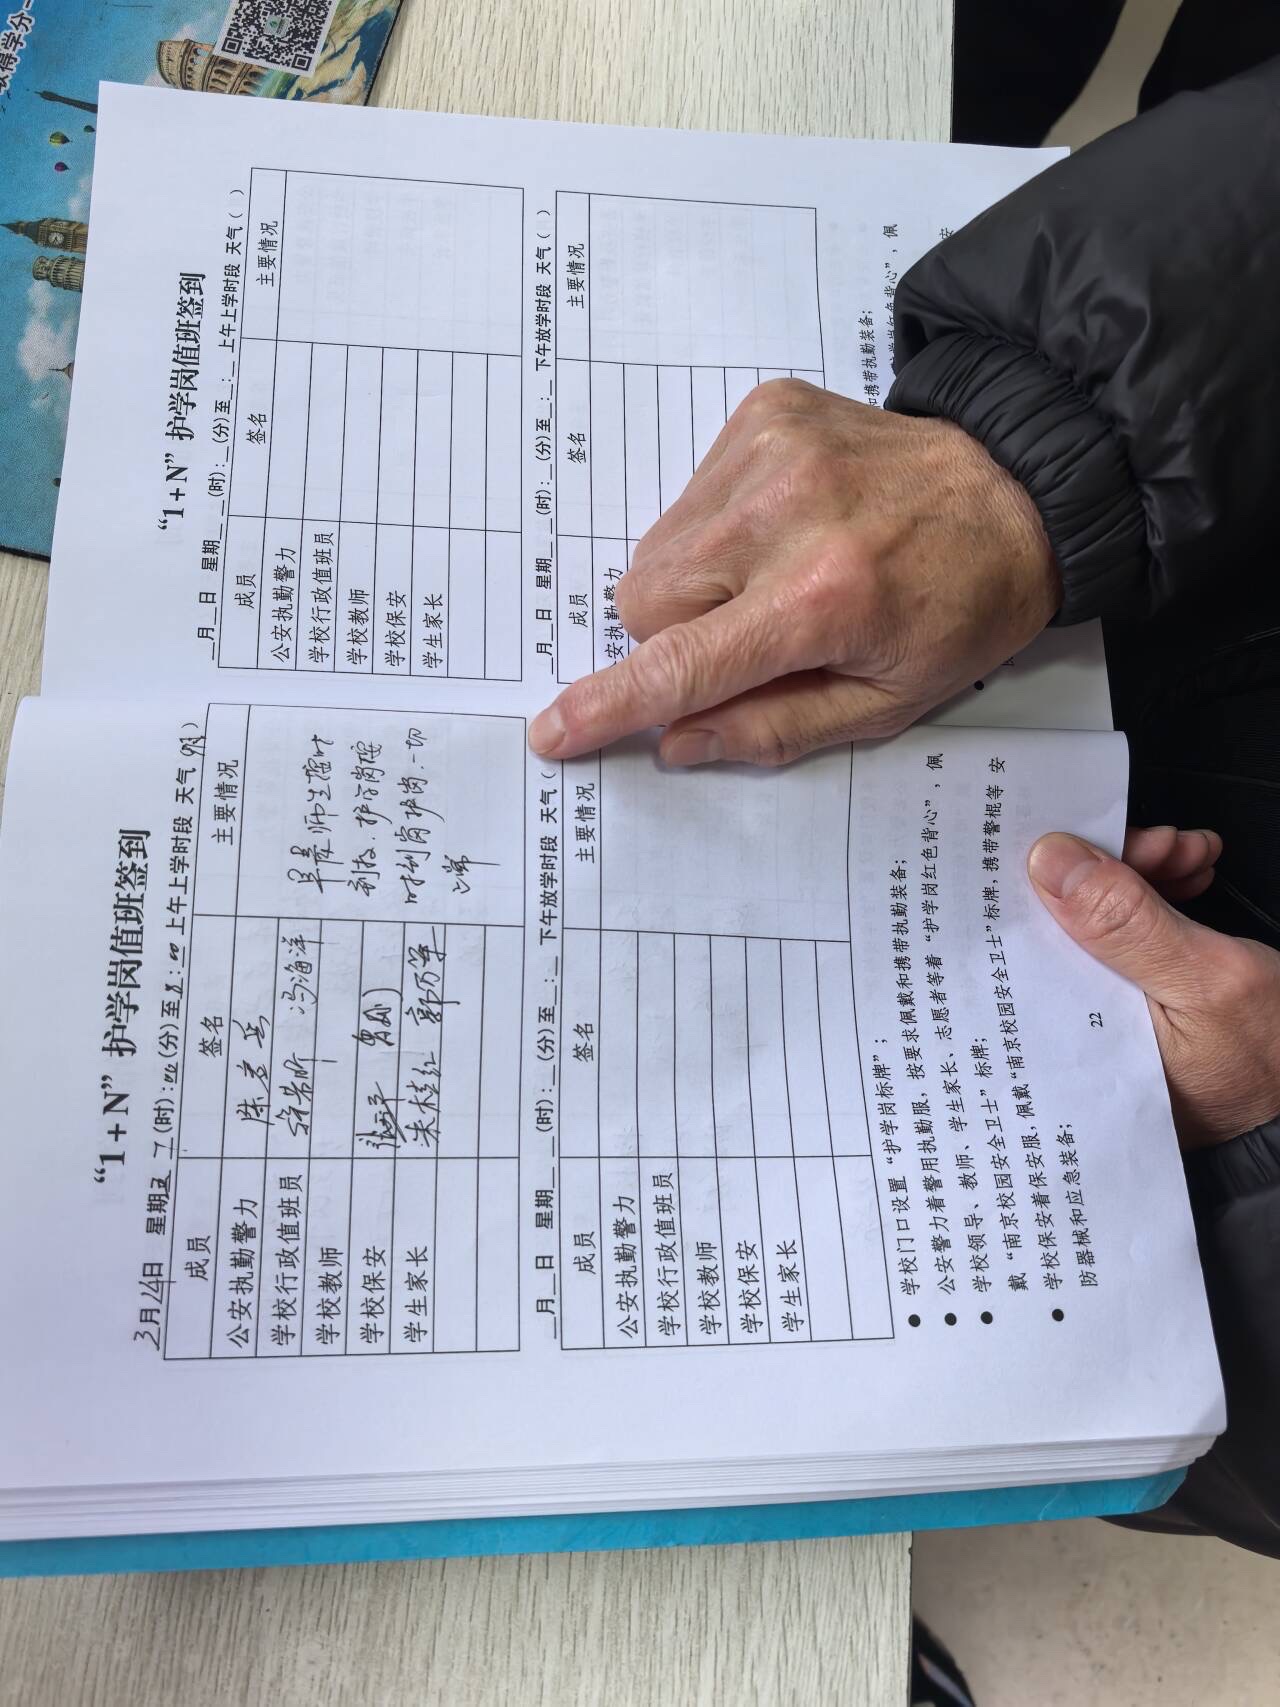 “1+N”护学岗值班签到
3月14日 星期五 7(时):00(分)至8:00 上午上学时段 天气(阴)
成员 签名 主要情况
公安执勤警力
学校行政值班员 冯海洋
学校教师
学校保安
学生家长 朱桂红 郭万军
早晨师生按时
到校、护学岗按
时到岗护岗.一切
正常
__月__日 星期__ __(时):__(分)至__:__ 下午放学时段 天气(
成员 签名 主要情况
公安执勤警力
学校行政值班员
学校教师
学校保安
学生家长
● 学校门口设置“护学岗标牌”;
● 公安警力着警用执勤服,按要求佩戴和携带执勤装备;
● 学校领导、教师、学生家长、志愿者等着“护学岗红色背心”,佩
戴“南京校园安全卫士”标牌;
● 学校保安着保安服,佩戴“南京校园安全卫士”标牌,携带警棍等安
防器械和应急装备;
22
“1+N”护学岗值班签到
__月__日 星期__ __(时):__(分)至__:__ 上午上学时段 天气( )
成员 签名 主要情况
公安执勤警力
学校行政值班员
学校教师
学校保安
学生家长
__月__日 星期__ __(时):__(分)至__:__ 下午放学时段 天气( )
成员 签名 主要情况
安执勤警力
和携带执勤装备;
学岗红色背心”,佩
安
取得学分